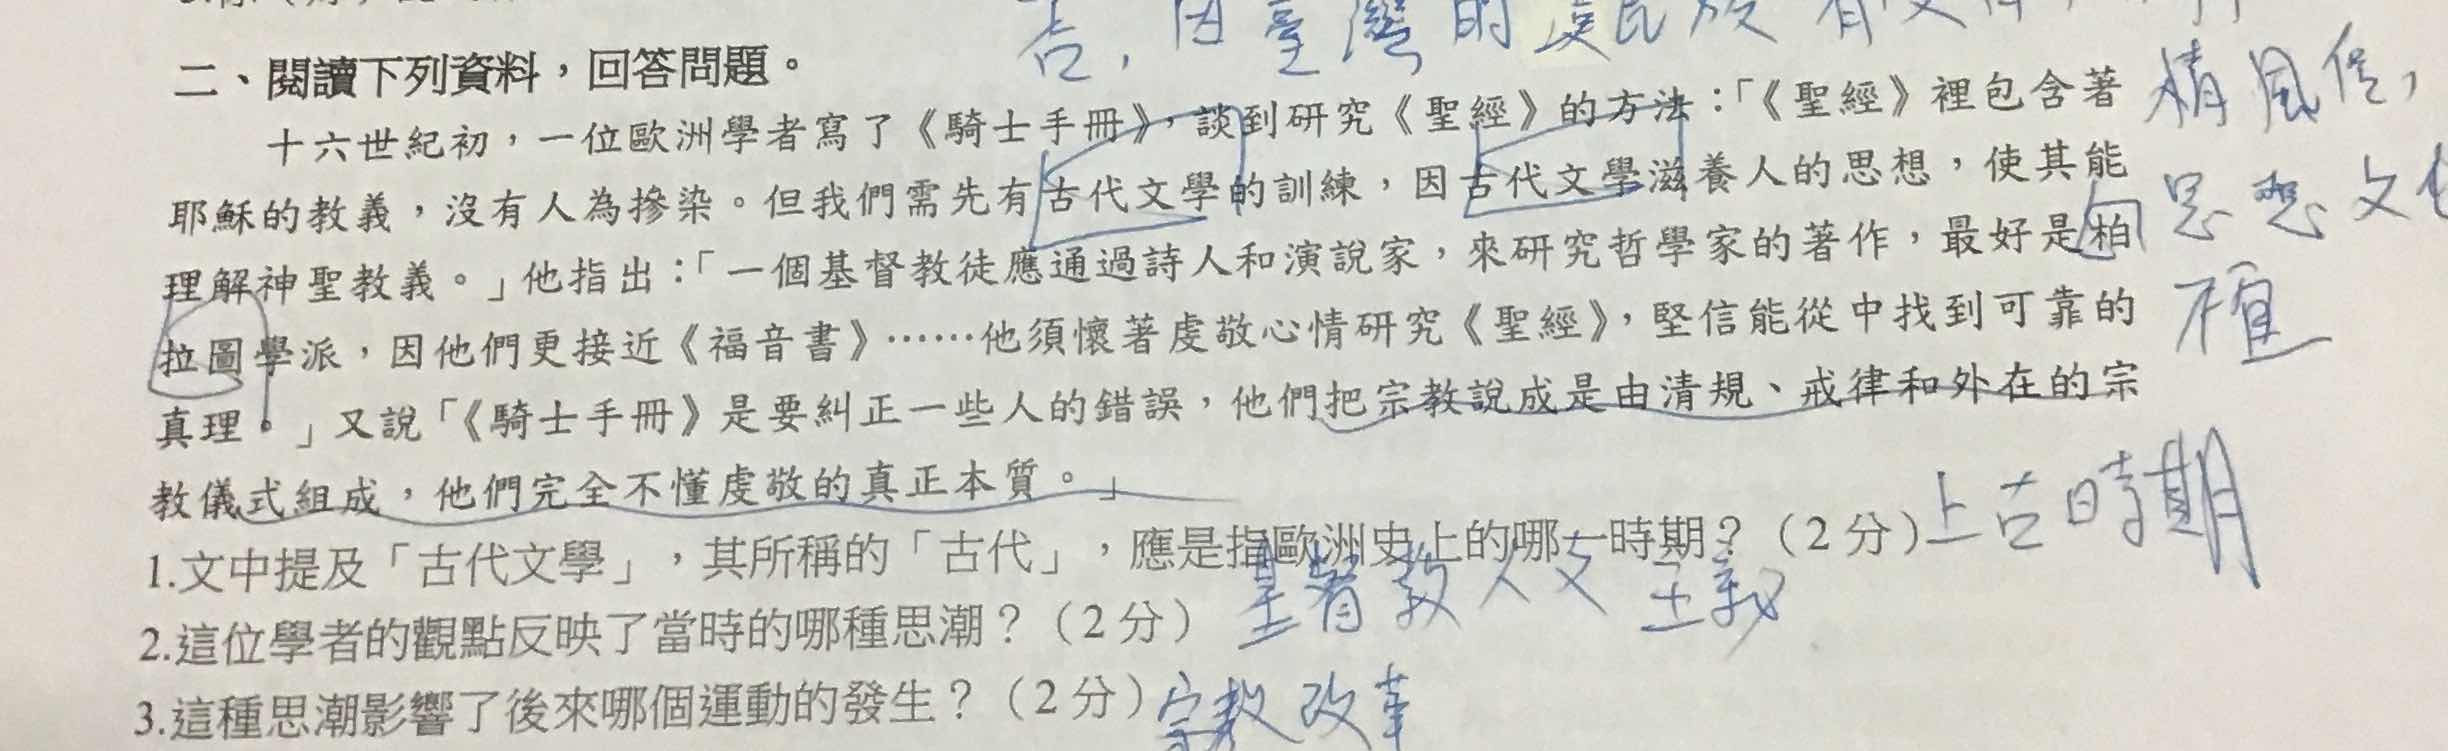 告,因臺灣的
二、閱讀下列資料,回答問題。
精風俗,
十六世紀初,一位歐洲學者寫了《騎士手冊》,談到研究《聖經》的方法:「《聖經》裡包含著
耶穌的教義,沒有人為摻染。但我們需先有古代文學的訓練,因古代文學滋養人的思想,使其能
思想文化
理解神聖教義。」他指出:「一個基督教徒應通過詩人和演說家,來研究哲學家的著作,最好是柏
拉圖學派,因他們更接近《福音書》……他須懷著虔敬心情研究《聖經》,堅信能從中找到可靠的
真理。」又說「《騎士手冊》是要糾正一些人的錯誤,他們把宗教說成是由清規、戒律和外在的宗
教儀式組成,他們完全不懂虔敬的真正本質。」
1.文中提及「古代文學」,其所稱的「古代」,應是指歐洲史上的哪一時期?(2分)上古時期
2.這位學者的觀點反映了當時的哪種思潮?(2分)基督教人文主義
3.這種思潮影響了後來哪個運動的發生?(2分)宗教改革